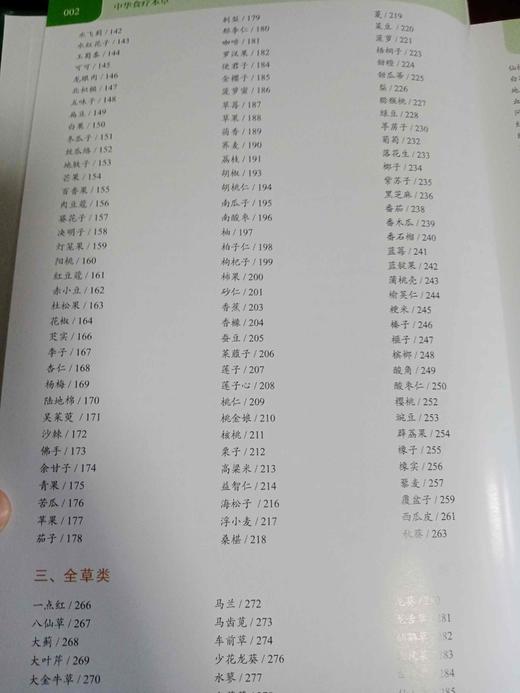 002
中华食疗本草
水飞蓟 / 142
水红花子 / 143
王菊荼 / 144
可可 / 145
龙眼肉 / 146
北枳椇 / 147
五味子 / 148
扁豆 / 149
白果 / 150
冬瓜子 / 151
丝瓜络 / 152
地肤子 / 153
芒果 / 154
百香果 / 155
肉豆蔻 / 156
葵花子 / 157
决明子 / 158
灯笼果 / 159
阳桃 / 160
红豆蔻 / 161
赤小豆 / 162
杜松果 / 163
花椒 / 164
芡实 / 166
李子 / 167
杏仁 / 168
杨梅 / 169
陆地棉 / 170
吴茱萸 / 171
沙棘 / 172
佛手 / 173
余甘子 / 174
青果 / 175
苦瓜 / 176
苹果 / 177
茄子 / 178
刺梨 / 179
郁李仁 / 180
咖啡 / 181
罗汉果 / 182
使君子 / 184
金樱子 / 185
菠萝蜜 / 186
草莓 / 187
草果 / 188
茴香 / 189
荞麦 / 190
荔枝 / 191
胡椒 / 193
胡桃仁 / 194
南瓜子 / 195
南酸枣 / 196
柚 / 197
柏子仁 / 198
枸杞子 / 199
柿果 / 200
砂仁 / 201
香蕉 / 203
香橼 / 204
蚕豆 / 205
莱菔子 / 206
莲子 / 207
莲子心 / 208
桃仁 / 209
桃金娘 / 210
核桃 / 211
栗子 / 212
高粱米 / 213
益智仁 / 214
海松子 / 216
浮小麦 / 217
桑椹 / 218
菱 / 219
菜豆 / 220
菠萝 / 221
梧桐子 / 223
甜橙 / 224
甜瓜蒂 / 225
梨 / 226
猕猴桃 / 227
绿豆 / 228
葶苈子 / 230
葡萄 / 232
落花生 / 233
椰子 / 234
紫苏子 / 235
黑芝麻 / 236
番茄 / 238
番木瓜 / 239
番石榴 / 240
蓝莓 / 241
蓝靛果 / 242
蒲桃壳 / 243
榆荚仁 / 244
粳米 / 245
榛子 / 246
榧子 / 247
槟榔 / 248
酸角 / 249
酸枣仁 / 250
樱桃 / 252
豌豆 / 253
薜荔果 / 254
橡子 / 255
橡实 / 256
藜麦 / 257
覆盆子 / 259
西瓜皮 / 261
秋葵 / 263
三、全草类
一点红 / 266
八仙草 / 267
大蓟 / 268
大叶芹 / 269
大金牛草 / 270
马兰 / 272
马齿苋 / 273
车前草 / 274
少花龙葵 / 276
水蓼 / 277
龙葵 / 280
181
182
183
184
185